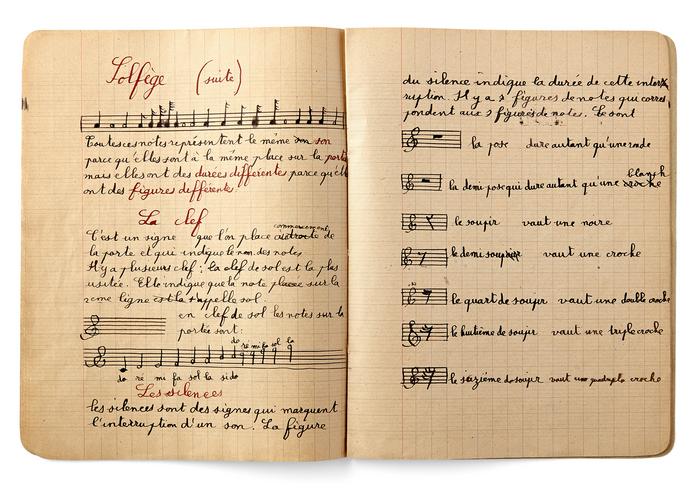 Solfège (suite)
Toutes ces notes représentent le même son son
parce qu'elles sont à la même place sur la porté
mais elles ont des durées différentes parce qu'ell
ont des figures différentes.
La clef
commencement
C'est un signe que l'on place de
la porte et qui indique le nom des notes
Il y a plusieurs clef : la clef de sol est la plus
usitée. Elle indique que la note placée sur la
2eme ligne est la s'appelle sol :
en clef de sol les notes sur la
portée sont :
do ré mi fa sol la
do ré mi fa sol la si do
Les silences
les silences sont des signes qui marquent
l'interruption d'un son. La figure
du silence indique la durée de cette inter
ruption. Il y a 7 figures de notes qui corres
pondent aux 7 figures de notes. Ce sont
la pose dure autant qu'une ronde
blanch
la demi-pose qui dure autant qu'une croche
le soupir vaut une noire
le demi soupir vaut une croche
le quart de soupir vaut une double croche
le huitième de soupir vaut une triple croche
le seizième de soupir vaut une quadruple croche